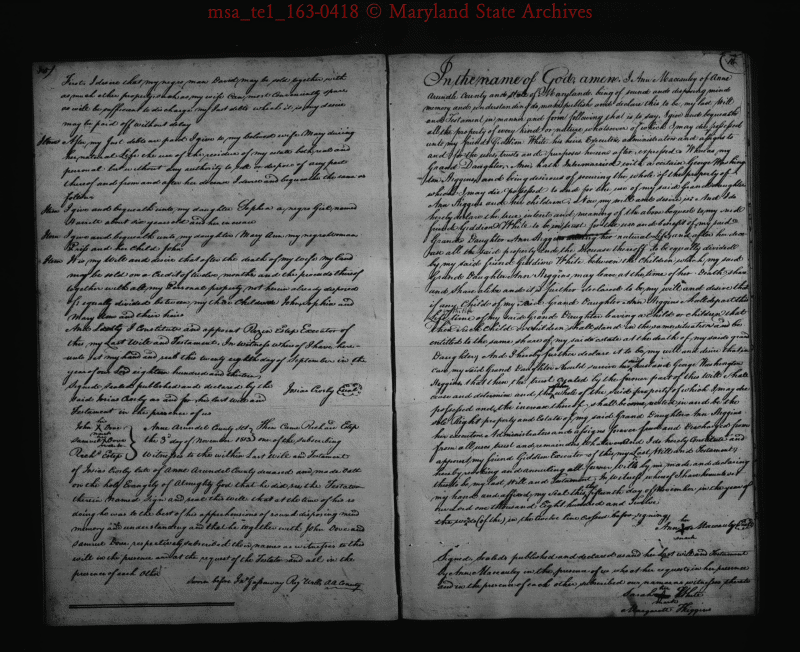 msa_te1_163-0418 © Maryland State Archives
First I desire that my negro man David may be sold together with
as much other property such as my wife can most conveniently spare
as will be sufficient to discharge my just debts which it is my desire
may be paid off without delay
Item After my Just debts are paid I give to my beloved wife Mary during
her natural Life the use of the residue of my estate both real and
personal but without any authority to sell or dispose of any part
thereof and from and after her decease I desire and bequeath the same as
follows
Item I give and bequeath unto my daughter Sophia a negro Girl named
about six years old and her increase
Item I give and bequeath unto my daughter Mary Ann my negro woman
and her Child John
Item It is my Will and desire that after the death of my wife my Land
may be sold on a Credit of twelve months and the proceeds thereof
together with all my Personal property not herein already disposed
of equally divided between my three Children John Sophia and
Mary Ann and their heirs
And Lastly I Constitute and appoint Estep Executor of
this my Last Will and Testament. In witness whereof I have here-
unto set my hand and seal this twenty eighth day of September in the
year of our Lord eighteen hundred and thirteen
Signed Sealed published and declared by the
Said Josias Crosby as and for his last will and
Josias Crosby Seal
Testament in the presence of us
John his X mark Dove
Samuel his X mark Dove
Rich.d Estep
Anne Arundel County Sct. Then Came Richard Estep
the 3.d day of November 1813 one of the subscribing
Witnesses to the within Last Will and Testament
of Josias Crosby late of Anne Arundel County deceased and made Oath
on the holy Evangely of Almighty God that he did see the Testator
therein Named Sign and seal this Will that at the time of his so
doing he was to the best of his apprehensions of sound disposing mind
memory and understanding and that he together with John Dove and
Samuel Dove respectively subscribed their names as witnesses to this
will in the presence and at the request of the Testator and all in the
presence of each other
Sworn before Jn.o Gassaway Reg. Wills A.A. County
In the name of God, amen. I Ann Macauley of Anne
Arundel County and State of Maryland being of sound and disposing mind
memory and understanding do make publish and declare this to be my last Will
and Testament in manner and form following that is to say, I give and bequeath
all the property of every kind or nature whatsoever of which I may die possessed
unto my friend Gideon White his heirs Executors administrators and assigns to
and for the uses trusts and purposes herein after expressed. Whereas my
Grand Daughter Ann hath Intermarried with a certain George Washing
ton Higgins and being desirous of securing the whole of the property of
which I may die possessed to and for the use of my said Grand daughter
Ann Higgins and her children; Now my will and desire is And I do
hereby declare the true intent and meaning of the above bequests to my said
friend Gideon White to be in trust for the use and benefit of my said
Grand Daughter Ann Higgins during her natural life and after her dec
ease all the said property and the Increase thereof to be equally divided
by my said friend Gideon White between the children which my said
Grand Daughter Ann Higgins may leave at the time of her Death share
and share alike and it is further declared to be my will and desire that
if any Child of my said Grand Daughter Ann Higgins shall depart this
life in the life time of my said Grand Daughter leaving a child or children that
such Child or children shall stand in the same situation and be
entitled to the same share of my said estate at the death of my said grand
Daughter, And I hereby further declare it to be my will and desire that in
case my said Grand Daughter should survive her husband George Washington
Higgins that then the trust created by the former part of this Will shall
cease and determine and the whole of the said property of which I may die
possessed and the increase thereof shall become vested in and be the
sole Right property and Estate of my said Grand Daughter Ann Higgins
her executors Administrators and assigns forever free and discharged from
all uses trust and remainders And I do hereby Constitute and
appoint my friend Gideon White Executor of this my Last Will and Testament
hereby revoking and annulling all former wills by me made and declaring
this to be my last Will and Testament. In witness whereof I have hereunto set
my hand and affixed my Seal this fifteenth day of November, in the year of
our Lord one thousand Eight hundred and Twelve
Ann her X mark Macauley Seal
Signed, Sealed, published and declared as and her Last will and Testament
by Anne Macauley in the presence of us who at her request, in her presence
and in the presence of each other subscribed our names as witnesses thereto
Sarah her X mark White
Margaret Higgins